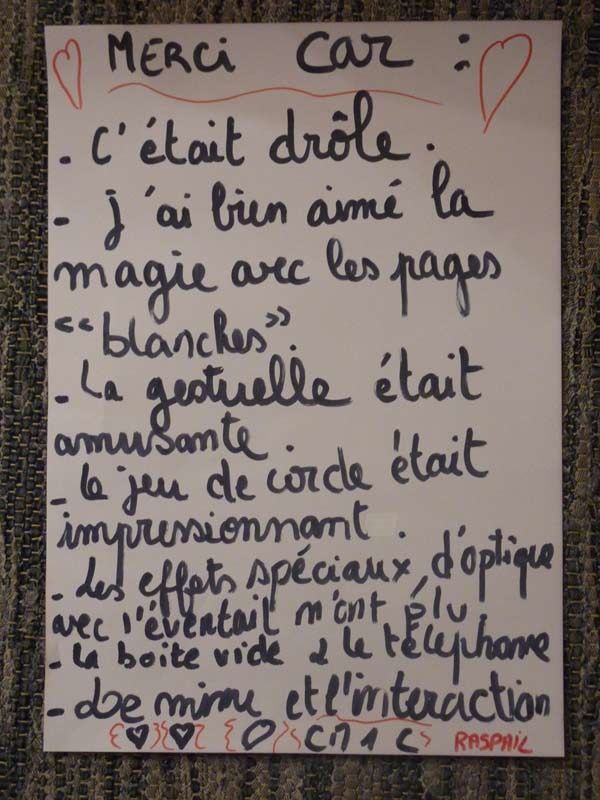 MERCi Car :
- C'était drôle.
- j'ai bien aimé la
magie avec les pages
"blanches".
- La gestuelle était
amusante.
- le jeu de corde était
impressionnant.
- Les effets spéciaux, d'optique
avec l'éventail m'ont plu.
- La boite vide & le téléphone
- Le mime et l'interaction
CM1 C RASPAIL